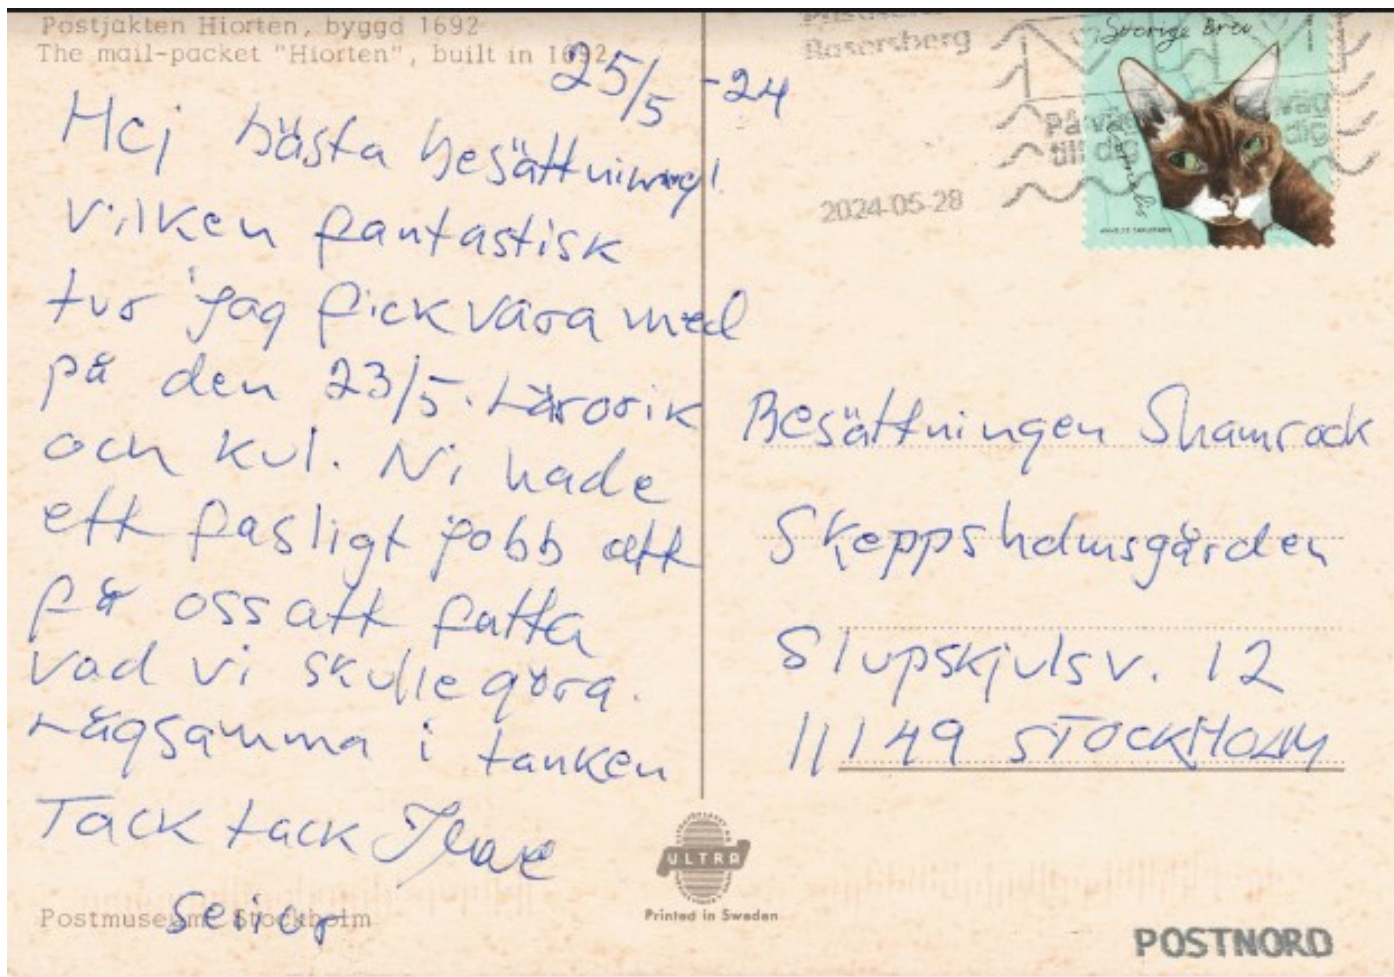 Postjakten Hiorten, byggd 1692
The mail-packet "Hiorten", built in 1692
25/5 -24
Hej bästa besättning!
Vilken fantastisk
tur jag fick vara med
på den 23/5. Lärorik
och kul. Ni hade
ett fasligt jobb att
få oss att fatta
vad vi skulle göra.
Lågsamma i tanken
Tack tack
Seior
Postmuseum Stockholm
Rosersberg
2024-05-28
Sverige Brev
På väg
till dig
Besättningen Shamrock
Skeppsholmsgården
Slupskjulsv. 12
11149 STOCKHOLM
ULTRA
Printed in Sweden
POSTNORD